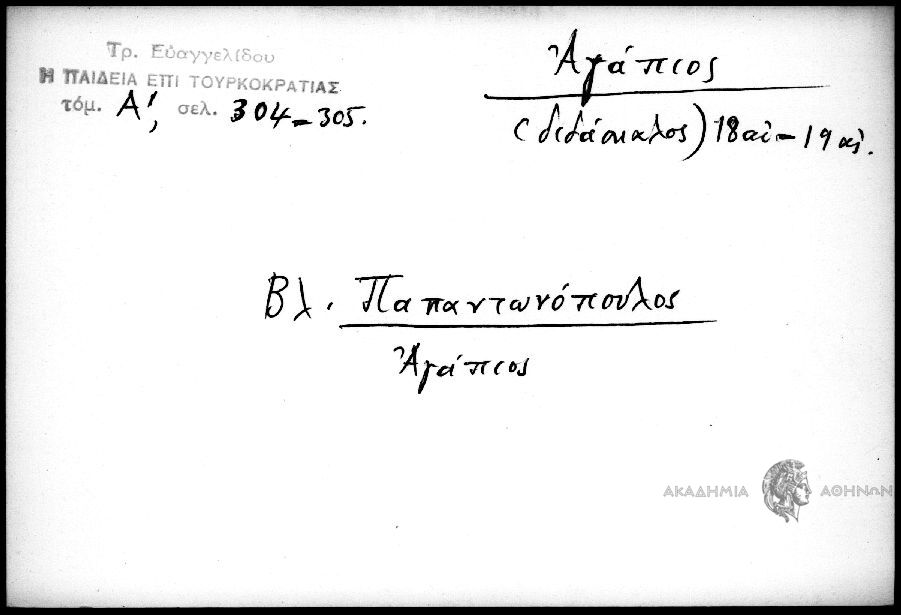 Τρ. Εὐαγγελίδου
Η ΠΑΙΔΕΙΑ ΕΠΙ ΤΟΥΡΚΟΚΡΑΤΙΑΣ
τόμ. Α', σελ. 304-305.
Ἀγάπιος
(διδάσκαλος) 18 αἰ - 19 αἰ.
Βλ. Παπαντωνόπουλος
Ἀγάπιος
ΑΚΑΔΗΜΙΑ ΑΘΗΝΩΝ